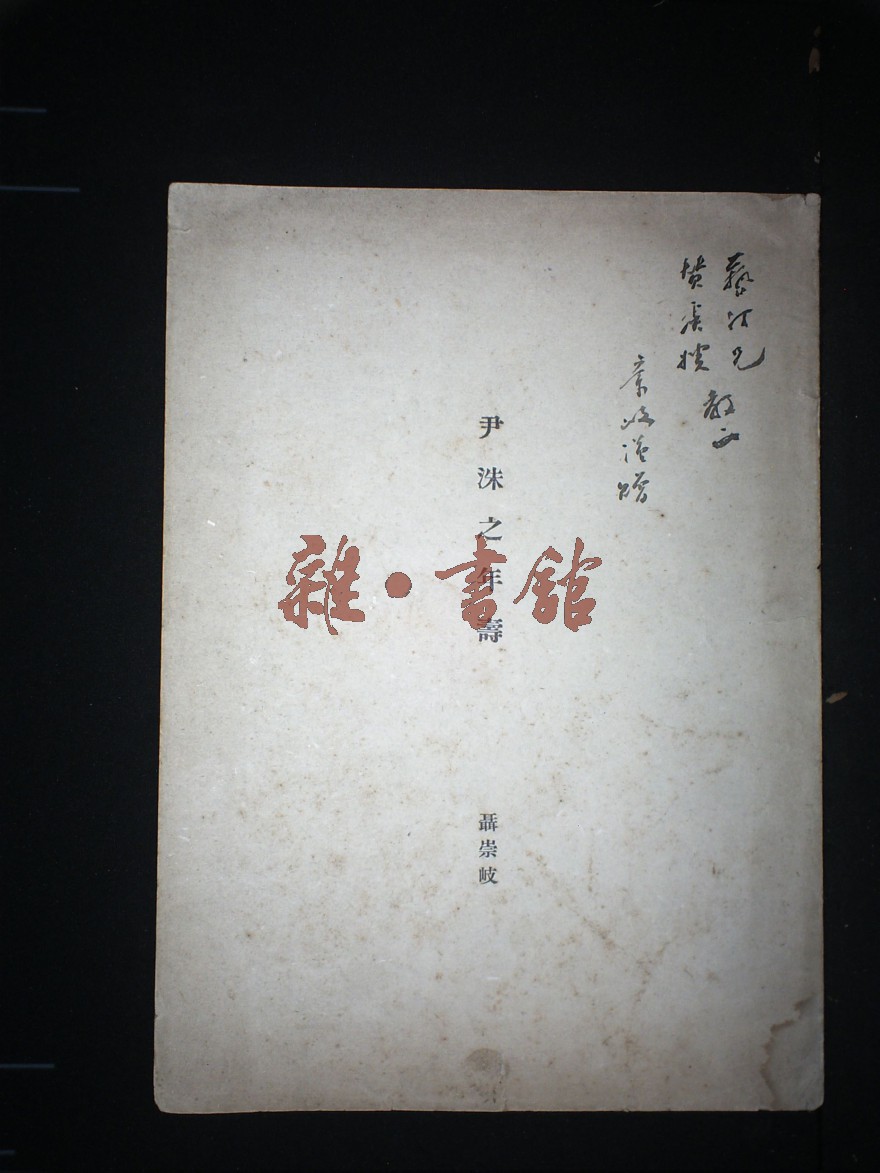 藝汀兄
嫂
教正
崇岐謹贈
尹洙之年壽
聶崇岐
雜·書館